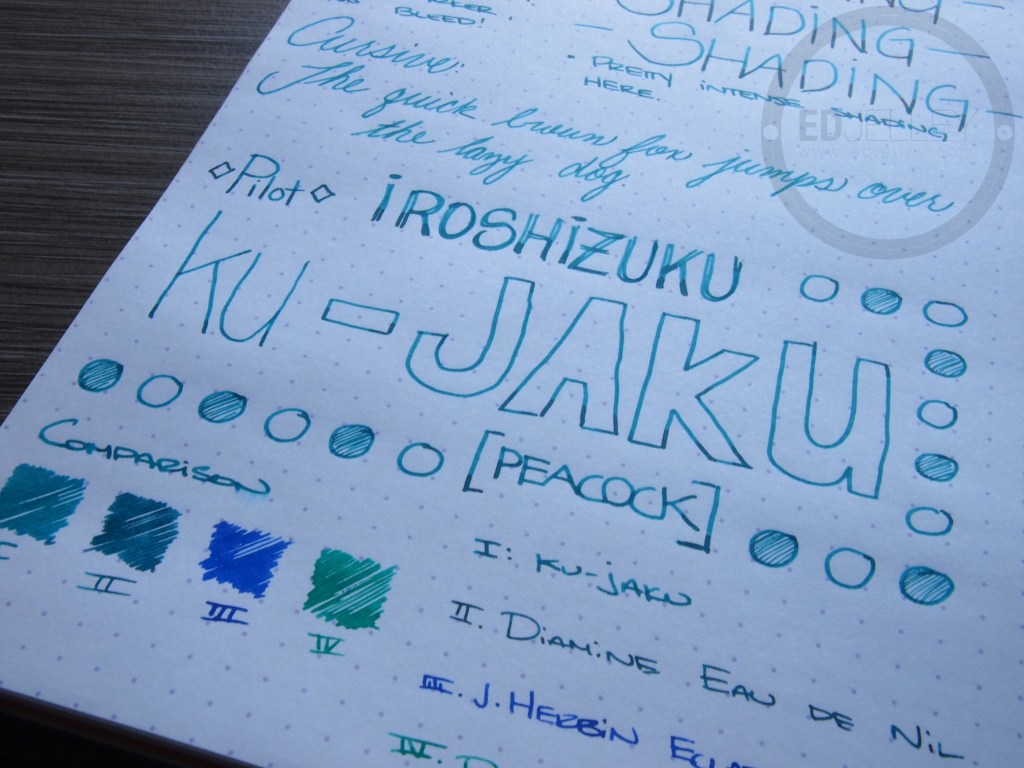 BLEED!
SHADING
SHADING
· PRETTY INTENSE SHADING
HERE.
Cursive:
The quick brown fox jumps over
the lazy dog.
◇Pilot◇ iROSHiZUKU
KU-JAKU
[PEACOCK]
COMPARISON
II
III
IV
I: KU-JAKU
II. DiAMiNE EAU DE NiL
III. J. HERBiN ECLAT
IV. D
EDJELLEY